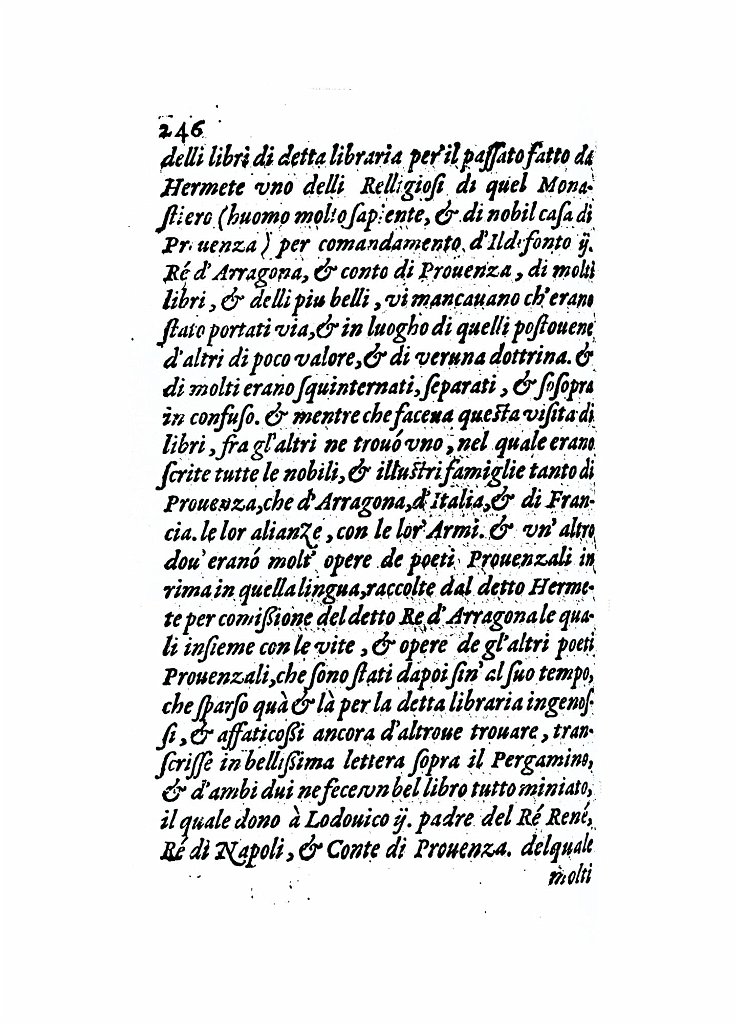 246
delli libri di detta libraria per il paſſato fatto da
Hermete vno delli Relligioſi di quel Mona-
ſtiero (huomo molto ſapiente, & di nobil caſa di
Prouenza) per comandamento d'Ildefonſo ij.
Ré d'Arragona, & conto di Prouenza, di molti
libri, & delli piu belli, vi mancauano ch'erano
ſtato portati via, & in luogho di quelli poſtouene
d'altri di poco valore, & di veruna dottrina. &
di molti erano ſquinternati, ſeparati, & ſoſopra
in confuſo. & mentre che faceua queſta viſita di
libri, fra gl'altri ne trouó vno, nel quale erano
ſcrite tutte le nobili, & illuſtri famiglie tanto di
Prouenza, che d'Arragona, d'Italia, & di Fran-
cia. le lor alianze, con le lor' Armi. & vn' altro
dou' eranó molt' opere de poeti Prouenzali in
rima in quella lingua, raccolte dal detto Herme-
te per comißione del detto Re d'Arragona le qua-
li inſieme con le vite, & opere de gl'altri poeti
Prouenzali, che ſono ſtati dapoi ſin' al ſuo tempo,
che ſparſo quà & là per la detta libraria ingenoſ-
ſi, & affaticoßi ancora d'altroue trouare, tran-
ſcriſſe in bellißima lettera ſopra il Pergamino,
& d'ambi dui ne fece vn bel libro tutto miniato,
il quale dono à Lodouico ij. padre del Ré René,
Ré di Napoli, & Conte di Prouenza. del quale
molti